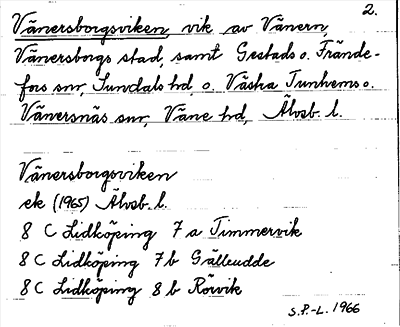 2.
Vänersborgsviken vik av Vänern,
Vänersborgs stad, samt Gestads o. Frände-
fors snr, Sundals hd, o. Västra Tunhems o.
Vänersnäs snr, Väne hd, Älvsb. l.
Vänersborgsviken
ek (1965) Älvsb. l.
8 C Lidköping 7 a Timmervik
8 C Lidköping 7 b Gälleudde
8 C Lidköping 8 b Rörvik
S.P.-L. 1966